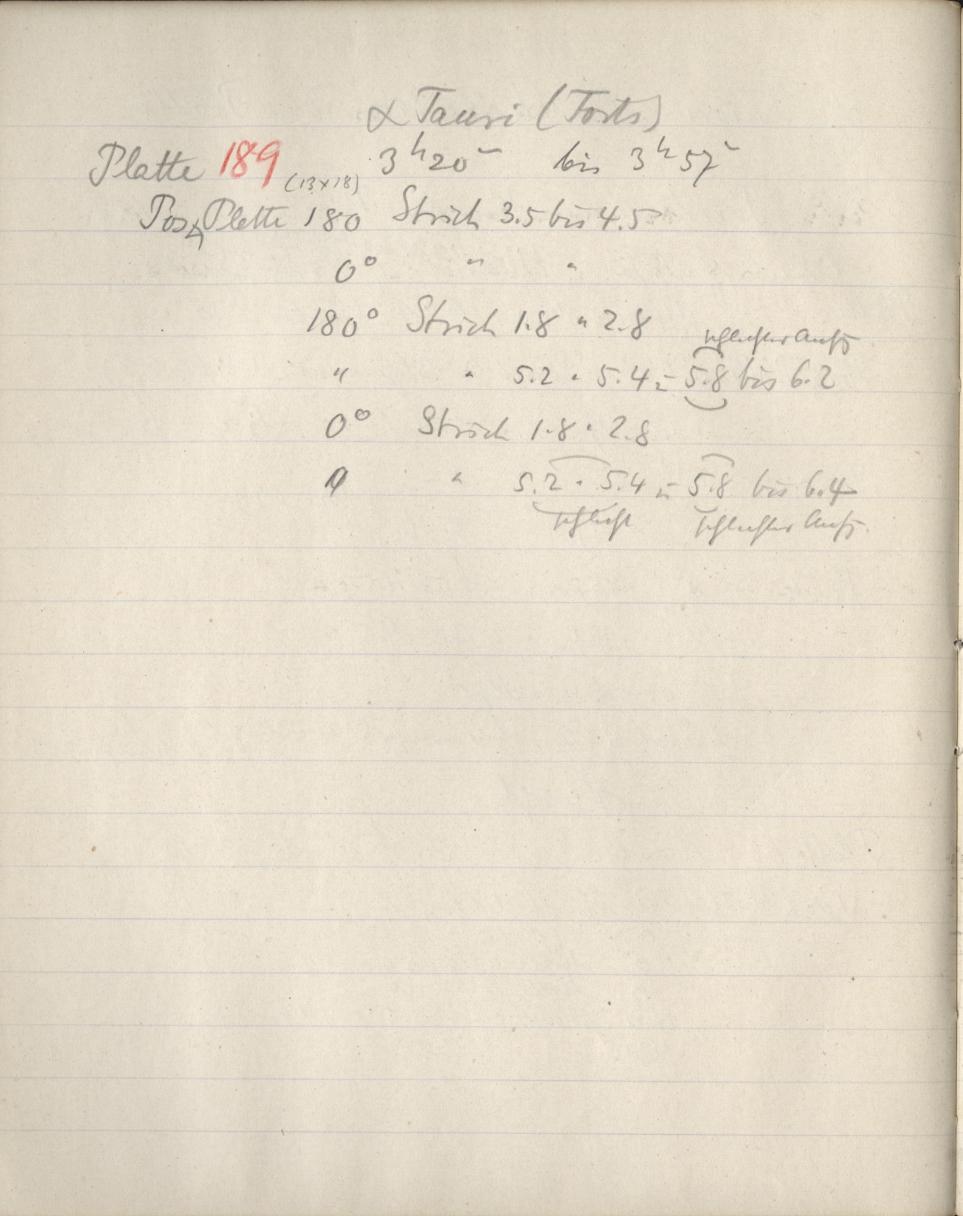 α Tauri (Forts)
Platte 189 (13x18) 3h20m bis 3h57m
Pos Platte 180 Strich 3.5 bis 4.5
0° " "
180° Strich 1.8 " 2.8
schlechter Aufg
" " 5.2 " 5.4 u 5.8 bis 6.2
0° Strich 1.8 " 2.8
0 " 5.2 " 5.4 u 5.8 bis 6.4
schlecht schlechter Aufg.